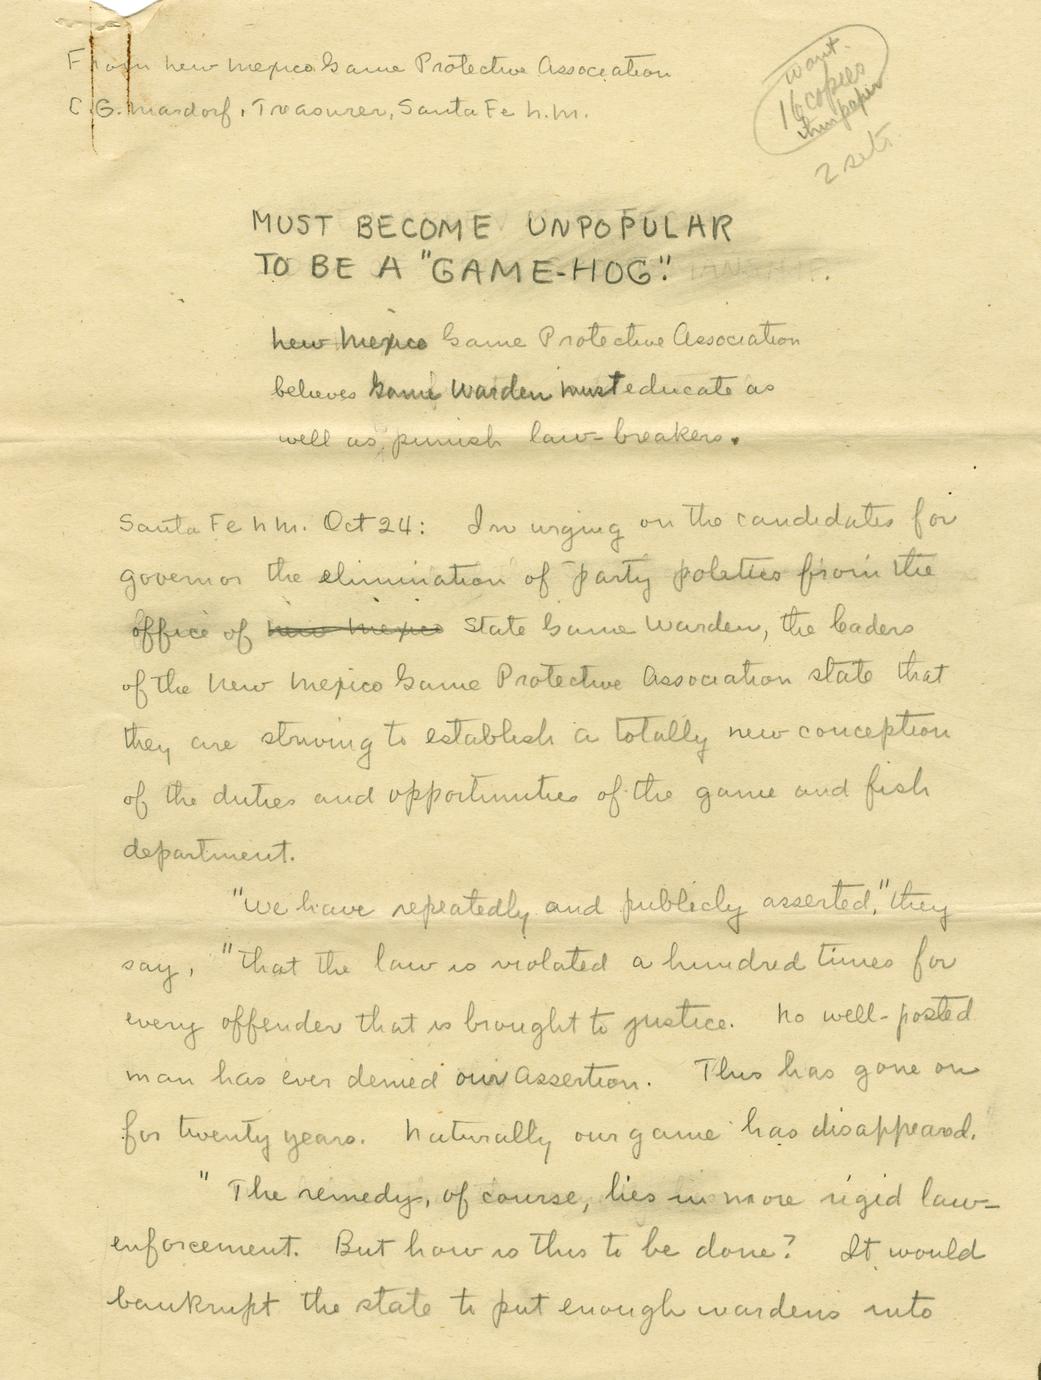 From New Mexico Game Protective Association
C.G. Mardorf, Treasurer, Santa Fe N.M.
want
16 copies
thin paper
2 sets
MUST BECOME UNPOPULAR
TO BE A "GAME-HOG".
New Mexico Game Protective Association
believes Game Warden must educate as
well as punish law-breakers.
Santa Fe N.M. Oct 24: In urging on the candidates for
governor the elimination of party politics from the
office of New Mexico State Game Warden, the leaders
of the New Mexico Game Protective Association state that
they are striving to establish a totally new conception
of the duties and opportunities of the game and fish
department.
"We have repeatedly and publicly asserted," they
say, "that the law is violated a hundred times for
every offender that is brought to justice. No well-posted
man has ever denied our assertion. This has gone on
for twenty years. Naturally our game has disappeared.
"The remedy, of course, lies in more rigid law-
enforcement. But how is this to be done? It would
bankrupt the state to put enough wardens into